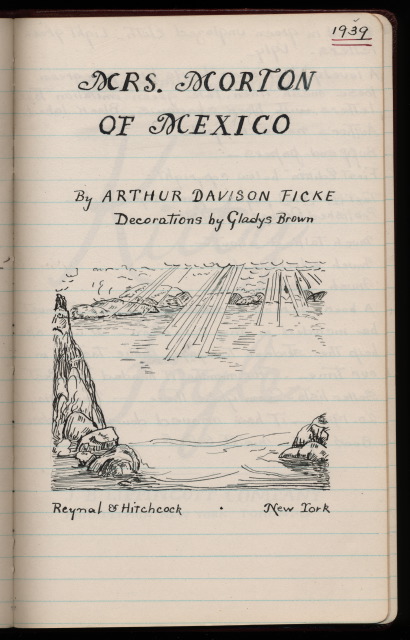 1939
MRS. MORTON
OF MEXICO
By ARTHUR DAVISON FICKE
Decorations by Gladys Brown
Reynal & Hitchcock • New York